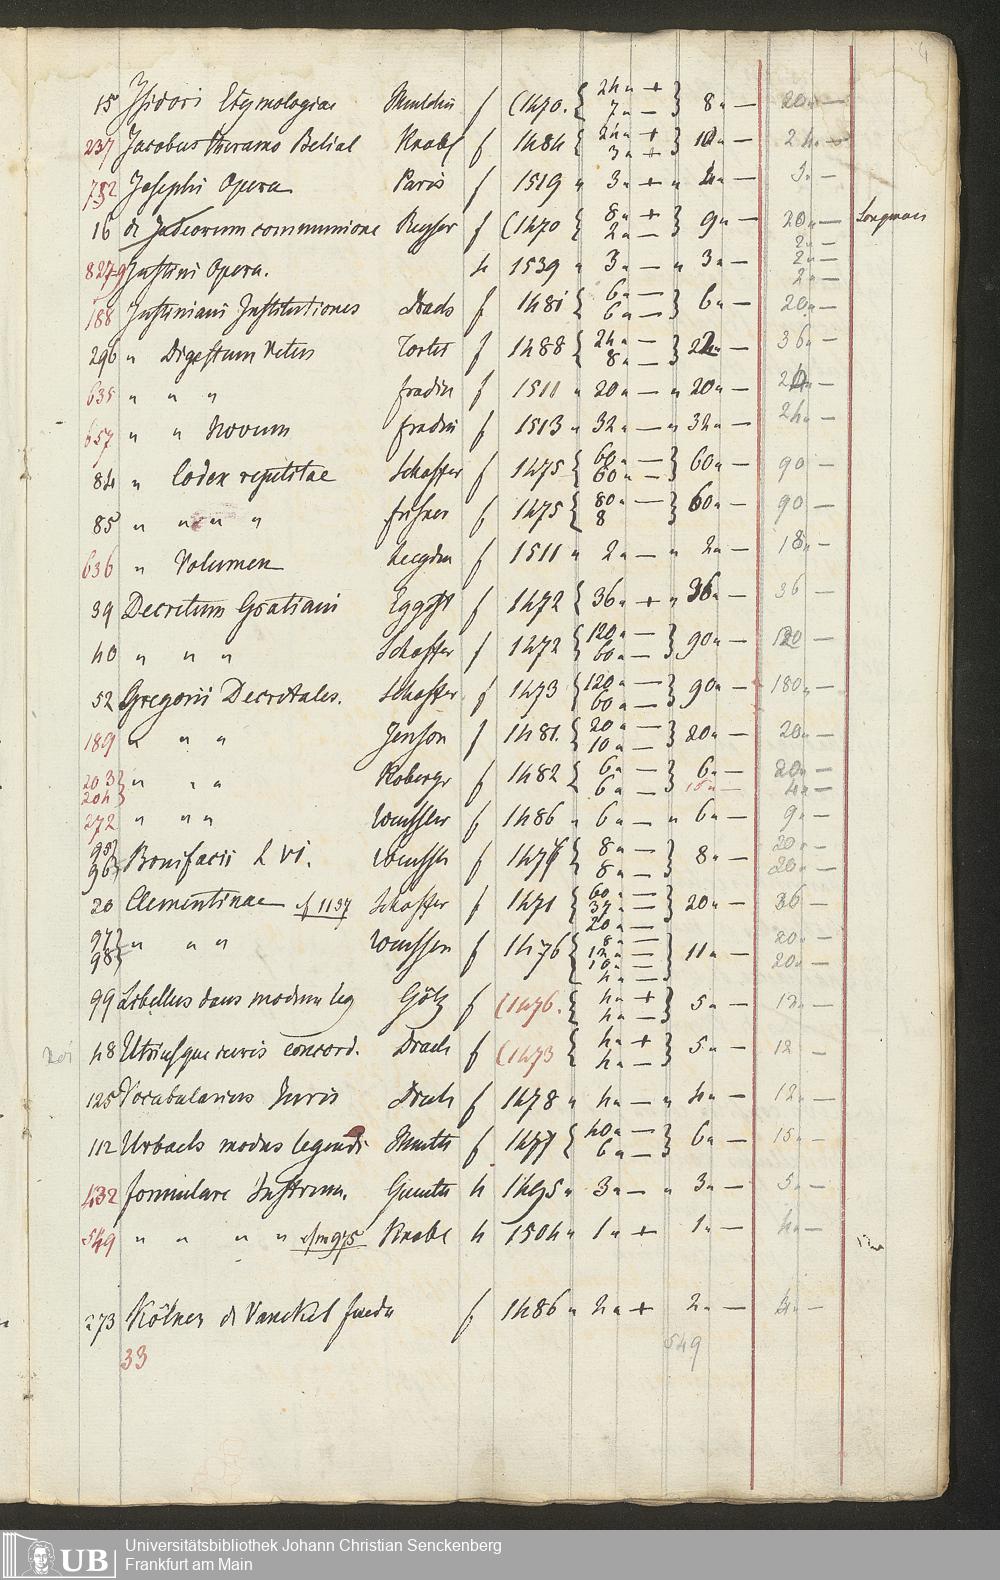 4
15 Isidori Etymologiae Mentelin f (1470. { 24 " + 7 " — } 8 " — 20 " —
237 Jacobus Theramo Belial Knobl f 1484 24 " + 3 " + } 10 " — 24 " —
782 Josephi Opera Paris f 1519 " 3 " + " 4 " — 3 " —
16 de Judeorum communione Reyser f (1470 { 8 " + 2 " — } 9 " — 20 " — Longmans
2 " —
8279 Justini Opera. 4 1539 " 3 " — " 3 " — 2 " — 2 " —
188 Justiniani Institutiones Drach f 1481 { 6 " — 6 " — } 6 " — 20 " —
296 " Digestum Vetus Tortis f 1488 { 24 " — 8 " — } 22 — 36 " —
635 " " " Fradin f 1511 " 20 " — " 20 " — 24 " —
657 " " Novum Fradin f 1513 " 32 " — " 32 " — 24 " —
84 " Codex repetitae Schoffer f 1475 { 60 " — 60 " — } 60 " — 90 —
85 " " " " f 1475 { 80 " — 8 } 60 " — 90 —
636 " Volumen Lugdun f 1511 " 2 " — " 2 " — 18 " —
39 Decretum Gratiani Eggest f 1472 { 36 " + " 36 " — 36 —
40 " " " Schoffer f 1472 { 120 " — 60 " — } 90 " — 120 —
52 Gregorii Decretales. Schoffer f 1473 { 120 " — 60 " — } 90 " — 180 " —
189 " " " Jenson f 1481. { 20 " — 10 " — } 20 " — 20 " —
203 204 } " " " Koberger f 1482 { 6 " — 6 " — } 6 " — 15 " — 20 " — 4 " —
272 " " " Wenssler f 1486 " 6 " — " 6 " — 9 " —
95 96 } Bonifacii L VI. Wenssler f 1477 { 8 " — 8 " — } 8 " — 20 " — 20 " —
20 Clementinae cf 1137 Schoffer f 1471 { 60 — 37 " — 20 " — 20 " — 36 —
97 98 } " " " Wenssler f 1476 { 8 " — 12 " — 10 " — 4 " — } 11 " — 20 " — 20 " —
99 Libellus dans modum leg Götz f (1476. { 4 " + 4 " — } 5 " — 12 " —
48 Utriusque iuris concord. Drach f (1473 { 4 " + 4 " — } 5 " — 12 —
125 Vocabularius Juris Drach f 1478 " 4 " — " 4 " — 12 " —
112 Urbach modus legendi f 1477 { 40 " — 6 " — } 6 " — 15 " —
432 Formulare Instrum. 4 1495 " 3 " — " 3 " — 5 " —
549 " " " " Knobl 4 1504 " 1 " + 1 " — 4 " —
273 Kölner de Vanckel f 1486 " 2 " + 2 " — 4 " —
33 549
UB Universitätsbibliothek Johann Christian Senckenberg
Frankfurt am Main